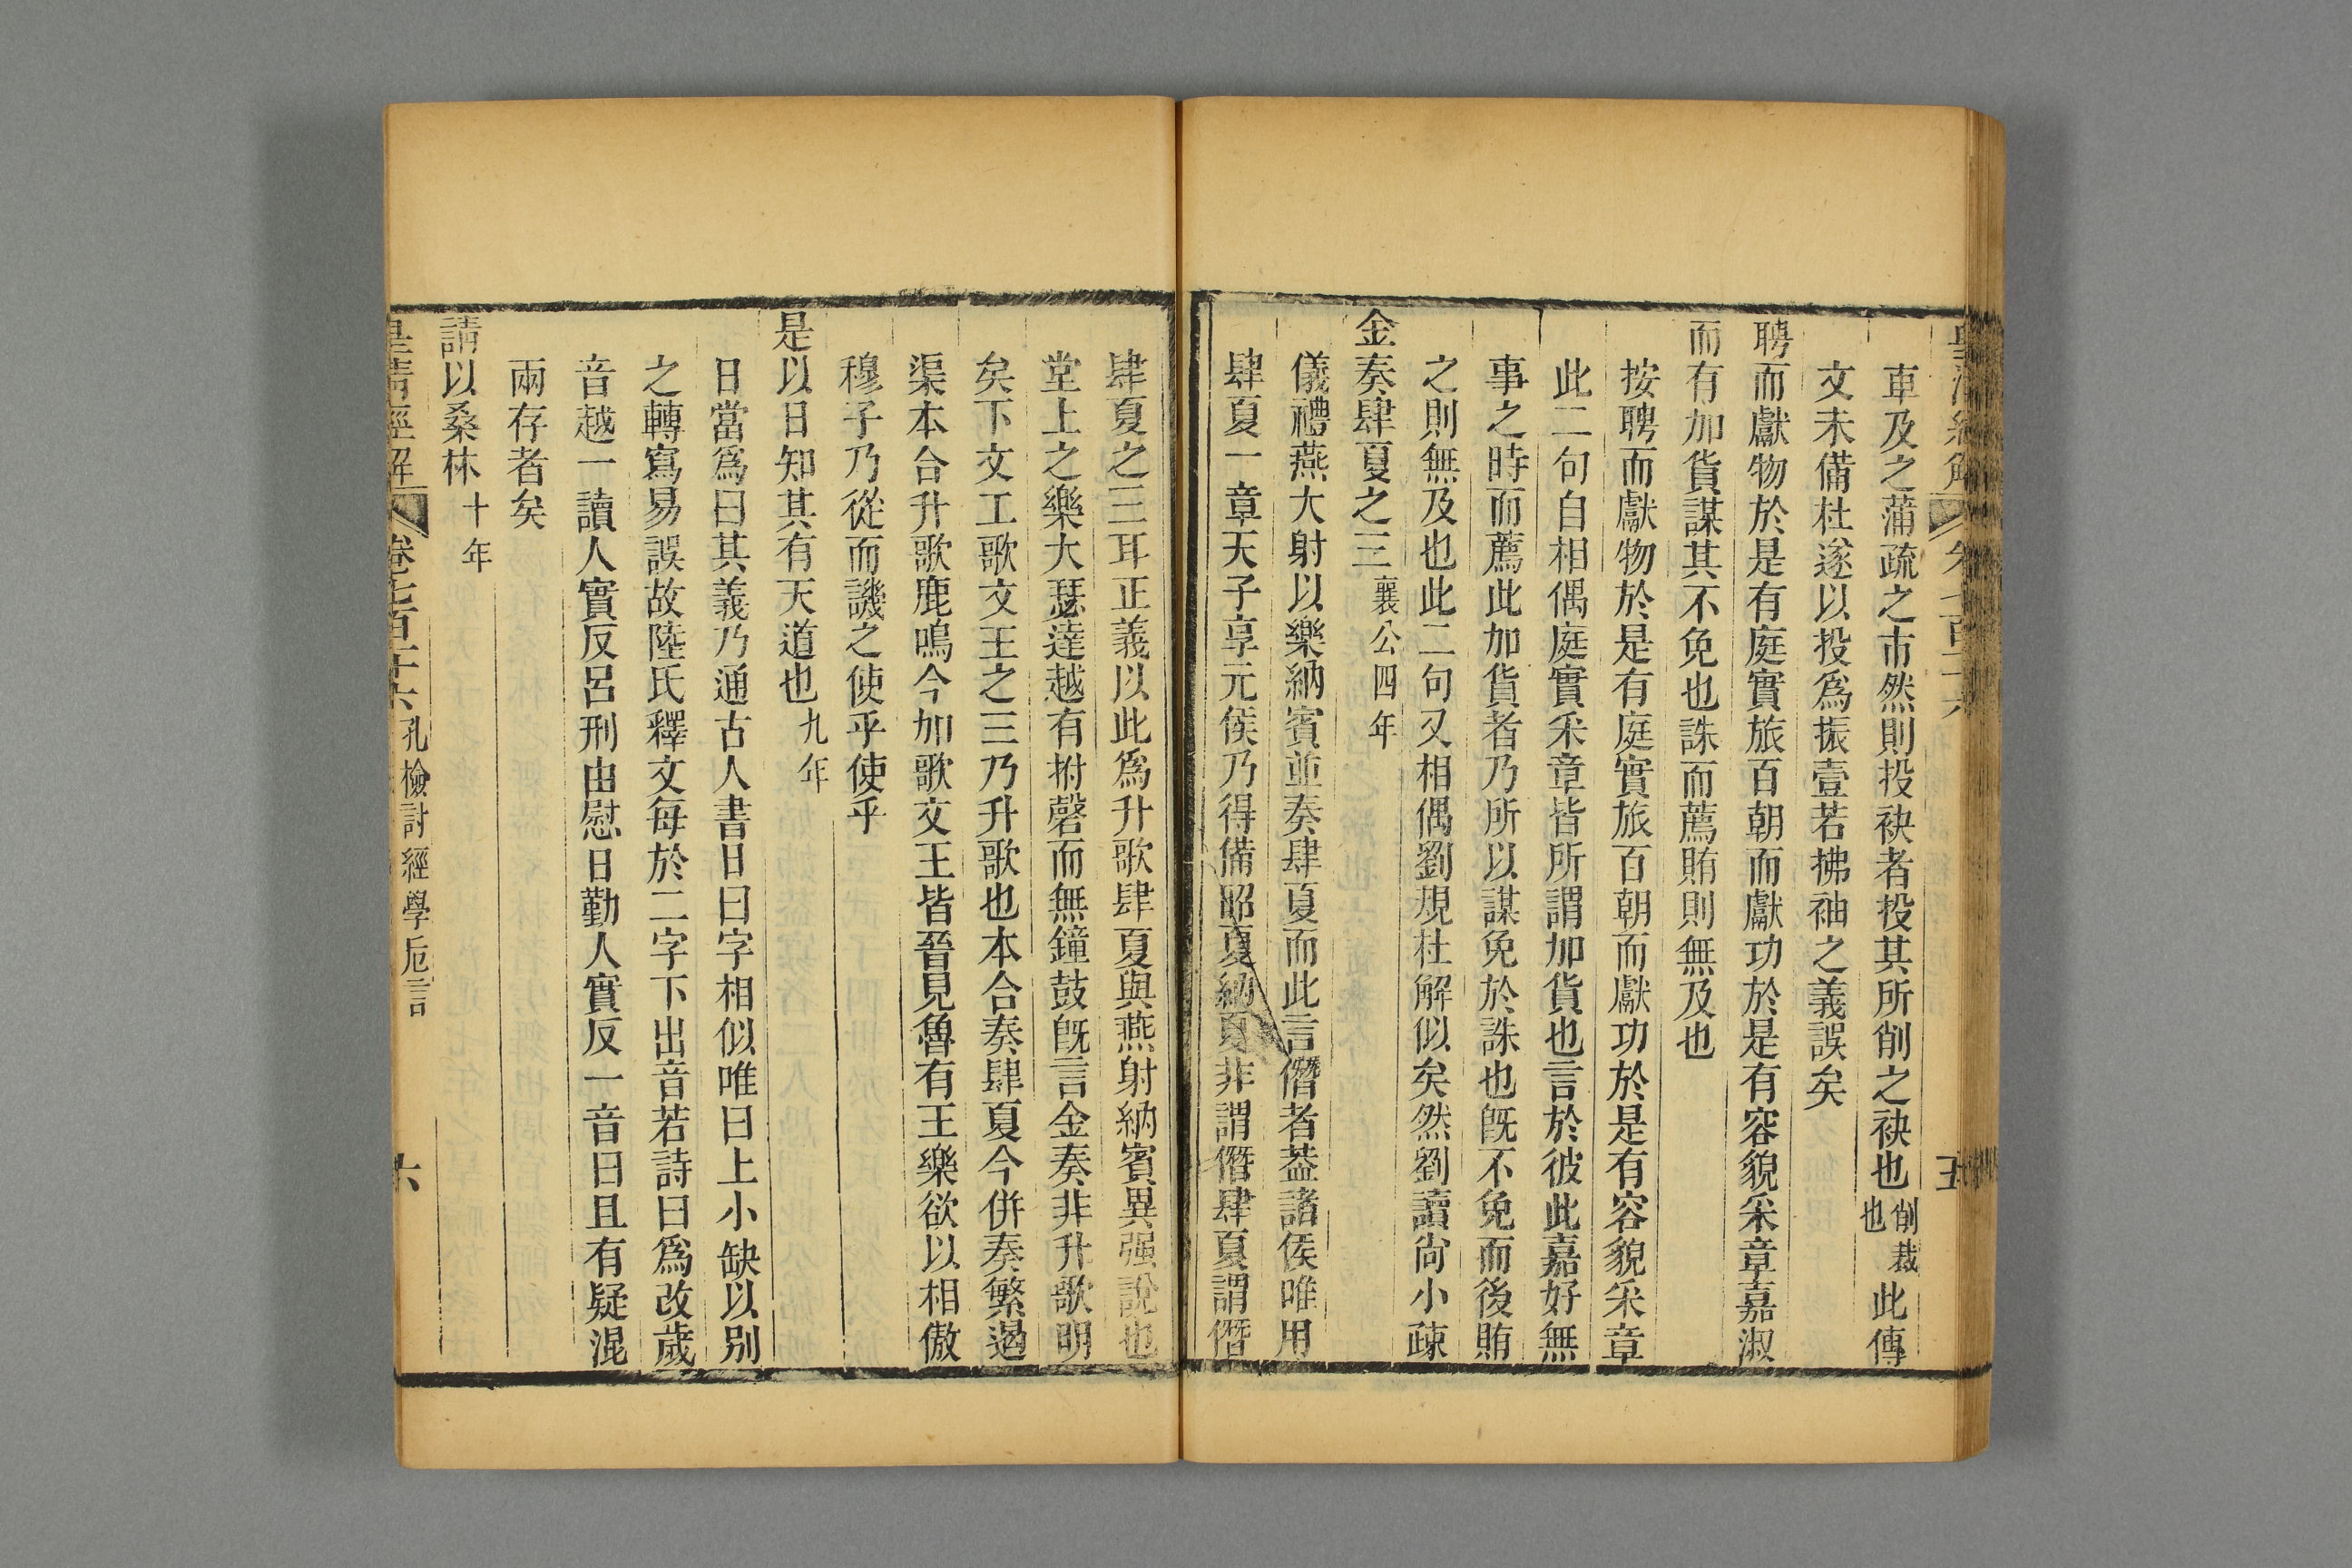 車及之蒲疏之市然則投袂者投其所削之袂也削裁也此傳
文未備杜遂以投爲振壹若拂袖之義誤矣
聘而獻物於是有庭實旅百朝而獻功於是有容貌采章嘉淑
而有加貨謀其不免也誅而薦賄則無及也
按聘而獻物於是有庭實旅百朝而獻功於是有容貌采章
此二句自相偶庭實采章皆所謂加貨也言於彼此嘉好無
事之時而薦此加貨者乃所以謀免於誅也旣不免而後賄
之則無及也此二句又相偶劉規杜解似矣然劉讀尙小疎
金奏肆夏之三襄公四年
儀禮燕大射以樂納賓並奏肆夏而此言僭者葢諸侯唯用
肆夏一章天子享元侯乃得備昭夏納夏非謂僭肆夏謂僭
肆夏之三耳正義以此爲升歌肆夏與燕射納賓異强說也
堂上之樂大瑟達越有拊磬而無鐘鼓旣言金奏非升歌明
矣下文工歌文王之三乃升歌也本合奏肆夏今併奏繁遏
渠本合升歌鹿鳴今加歌文王皆晉見魯有王樂欲以相傲
穆子乃從而譏之使乎使乎
是以日知其有天道也九年
日當爲曰其義乃通古人書日曰字相似唯曰上小缺以别
之轉寫易誤故陸氏釋文每於二字下出音若詩曰爲改歲
音越一讀人實反呂刑由慰日勤人實反一音曰且有疑混
兩存者矣
請以桑林十年
皇清經解 卷七百十六 孔檢討經學卮言 六